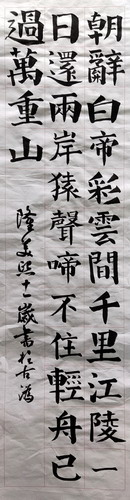 朝辭白帝彩雲間千里江陵一
日還兩岸猿聲啼不住輕舟已
過萬重山
十一歲書於古